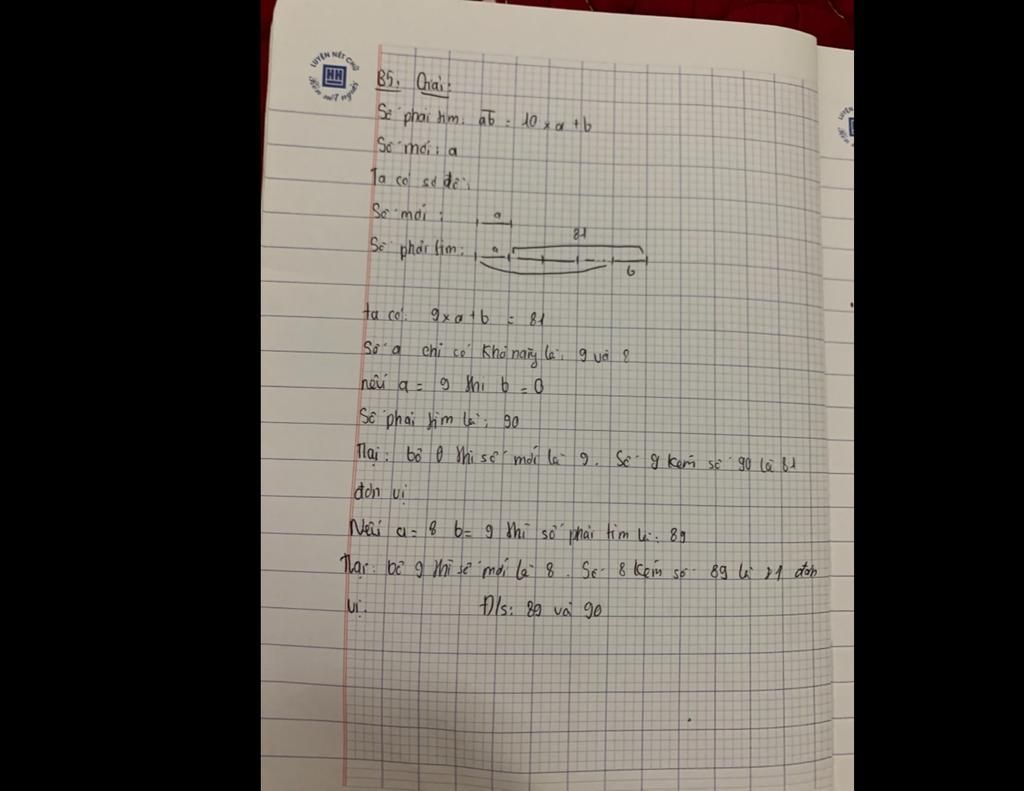 LUYỆN NÉT CHỮ
HH
Rèn nết người
B5. Giải:
Số phải tìm: ab = 10 x a + b
Số mới: a
Ta có sơ đồ:
Số mới: a
81
Số phải tìm: a
b
ta có: 9 x a + b = 81
Số a chỉ có khả năng là: 9 và 8
nếu a = 9 thì b = 0
Số phải tìm là: 90
Thại: bỏ 0 thì số mới là 9. Số 9 kém số 90 là 81
đơn vị
Nếu a = 8 b = 9 thì số phải tìm là: 89
Thại: bỏ 9 thì số mới là 8. Số 8 kém số 89 là 81 đơn
vị. Đ/s: 89 và 90